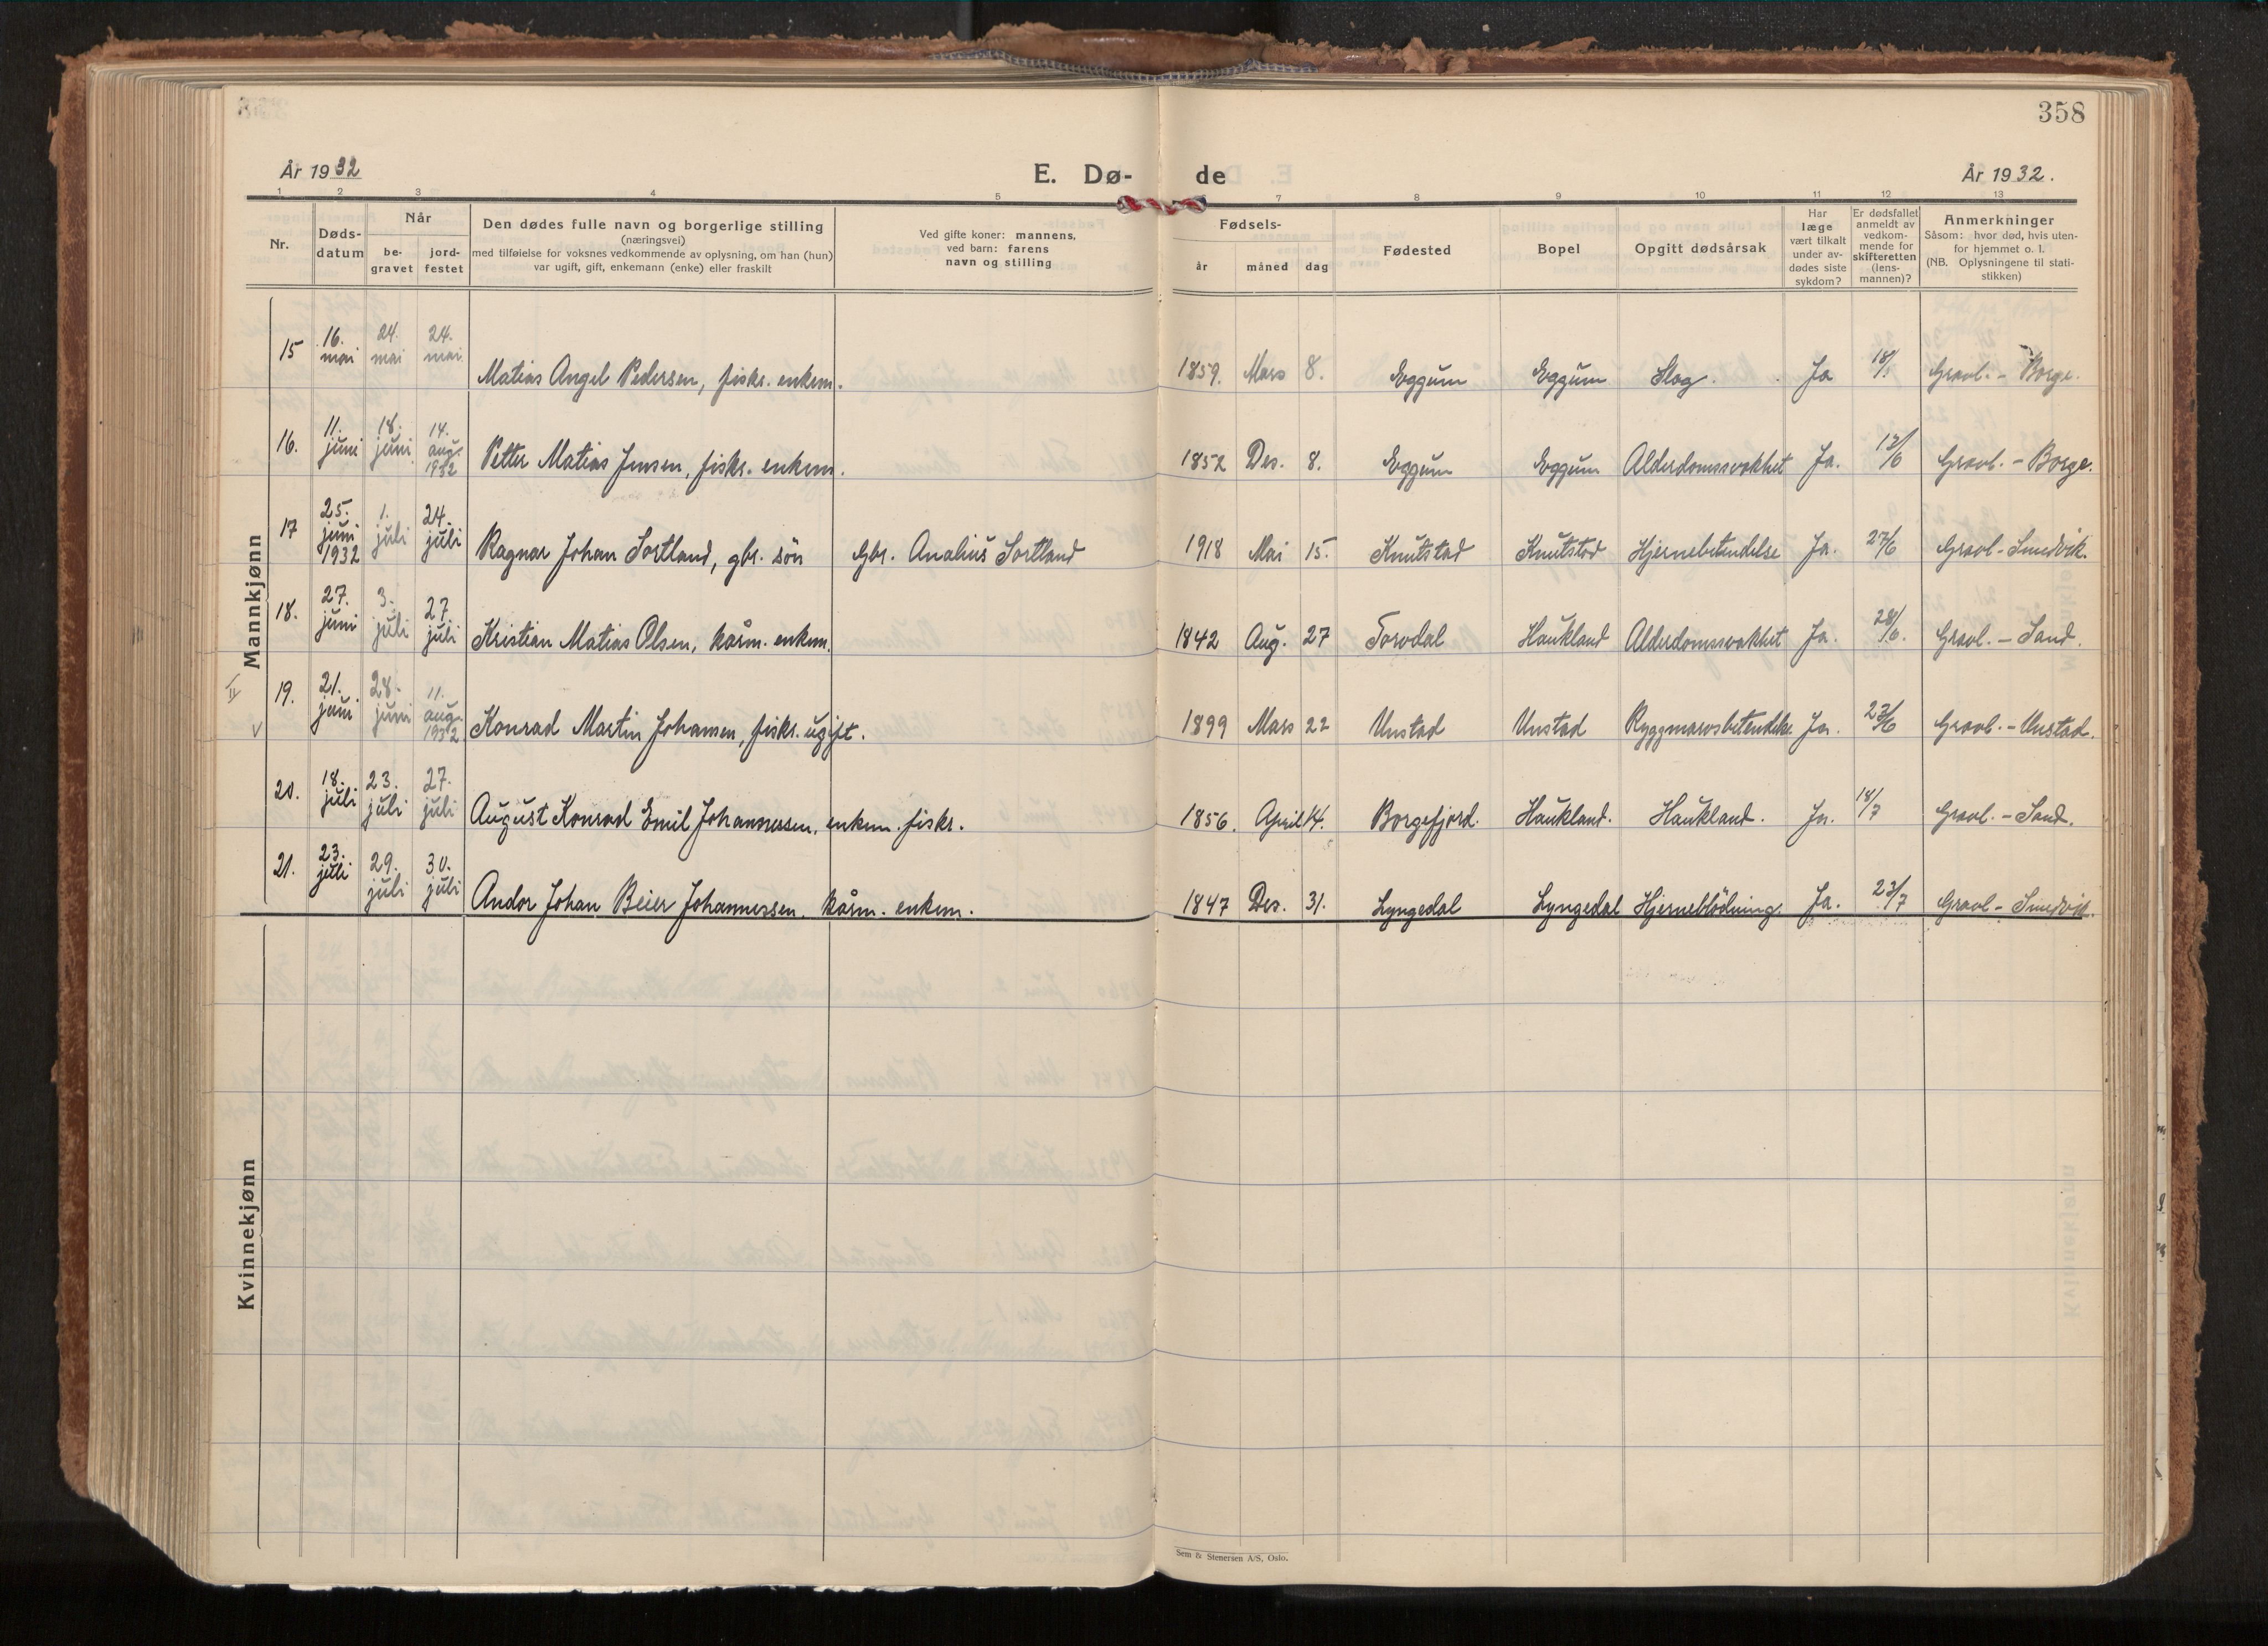 358
År 1932
E. Dø-
de
År 1932.
1 2 3 4 5 7 8 9 10 11 12 13
Nr.
Døds-
datum
Når
be-
gravet
jord-
festet
Den dødes fulle navn og borgerlige stilling
(næringsvei)
med tilføielse for voksnes vedkommende av oplysning, om han (hun)
var ugift, gift, enkemann (enke) eller fraskilt
Ved gifte koner: mannens,
ved barn: farens
navn og stilling
Fødsels-
år
måned
dag
Fødested
Bopel
Opgitt dødsårsak
Har
læge
vært tilkalt
under av-
dødes siste
sykdom?
Er dødsfallet
anmeldt av
vedkom-
mende for
skifteretten
(lens-
mannen)?
Anmerkninger
Såsom: hvor død, hvis uten-
for hjemmet o. l.
(NB. Oplysningene til stati-
stikken)
Mannkjønn
15 16. mai 24. mai 24. mai. Matias Angel Pedersen, fiskr. enkem. 1859. Mars 8. Eggum Eggum Slag. Ja Gravl. - Borge.
16. 11. juni 18. juni 14. aug. 1932 Petter Matias Jensen, fiskr. enkem. 1852 Des. 8. Eggum Eggum Alderdomssvakhet Ja. 12/6 Gravl. - Borge.
17 25. juni 1932 1. juli 24. juli Ragnar Johan Sortland, gbr. sön Gbr. Analius Sortland 1918 Mai 15. Knutstad Knutstad Hjernebetendelse Ja. 27/6 Gravl - Smedvik.
18. 27. juni 3. juli 27. juli Kristian Matias Olsen, kårm. enkem. 1842 Aug. 27 Torvdal Haukland Alderdomssvakhet Ja. 28/6. Gravl. - Sand.
19. 21. juni 28. juni 11. aug. 1932 Konrad Martin Johansen, fiskr. ugift. 1899 Mars 22 Unstad Unstad Ryggmarvsbetendelse Ja. 23/6 Gravl. - Unstad.
20. 18. juli 23. juli 27. juli August Konrad Emil Johannessen, enkem. fiskr. 1856. April 14. Borgefjord. Haukland. Haukland. Ja. 18/7 Gravl. - Sand.
21. 23. juli 29. juli 30. juli Andor Johan Beier Johannessen. kårm. enkem. 1847 Des. 31. Lyngedal Lyngedal Hjerneblödning. Ja. 23/7 Gravl - Smedvik.
Kvinnekjønn
Sem & Stenersen A/S, Oslo.